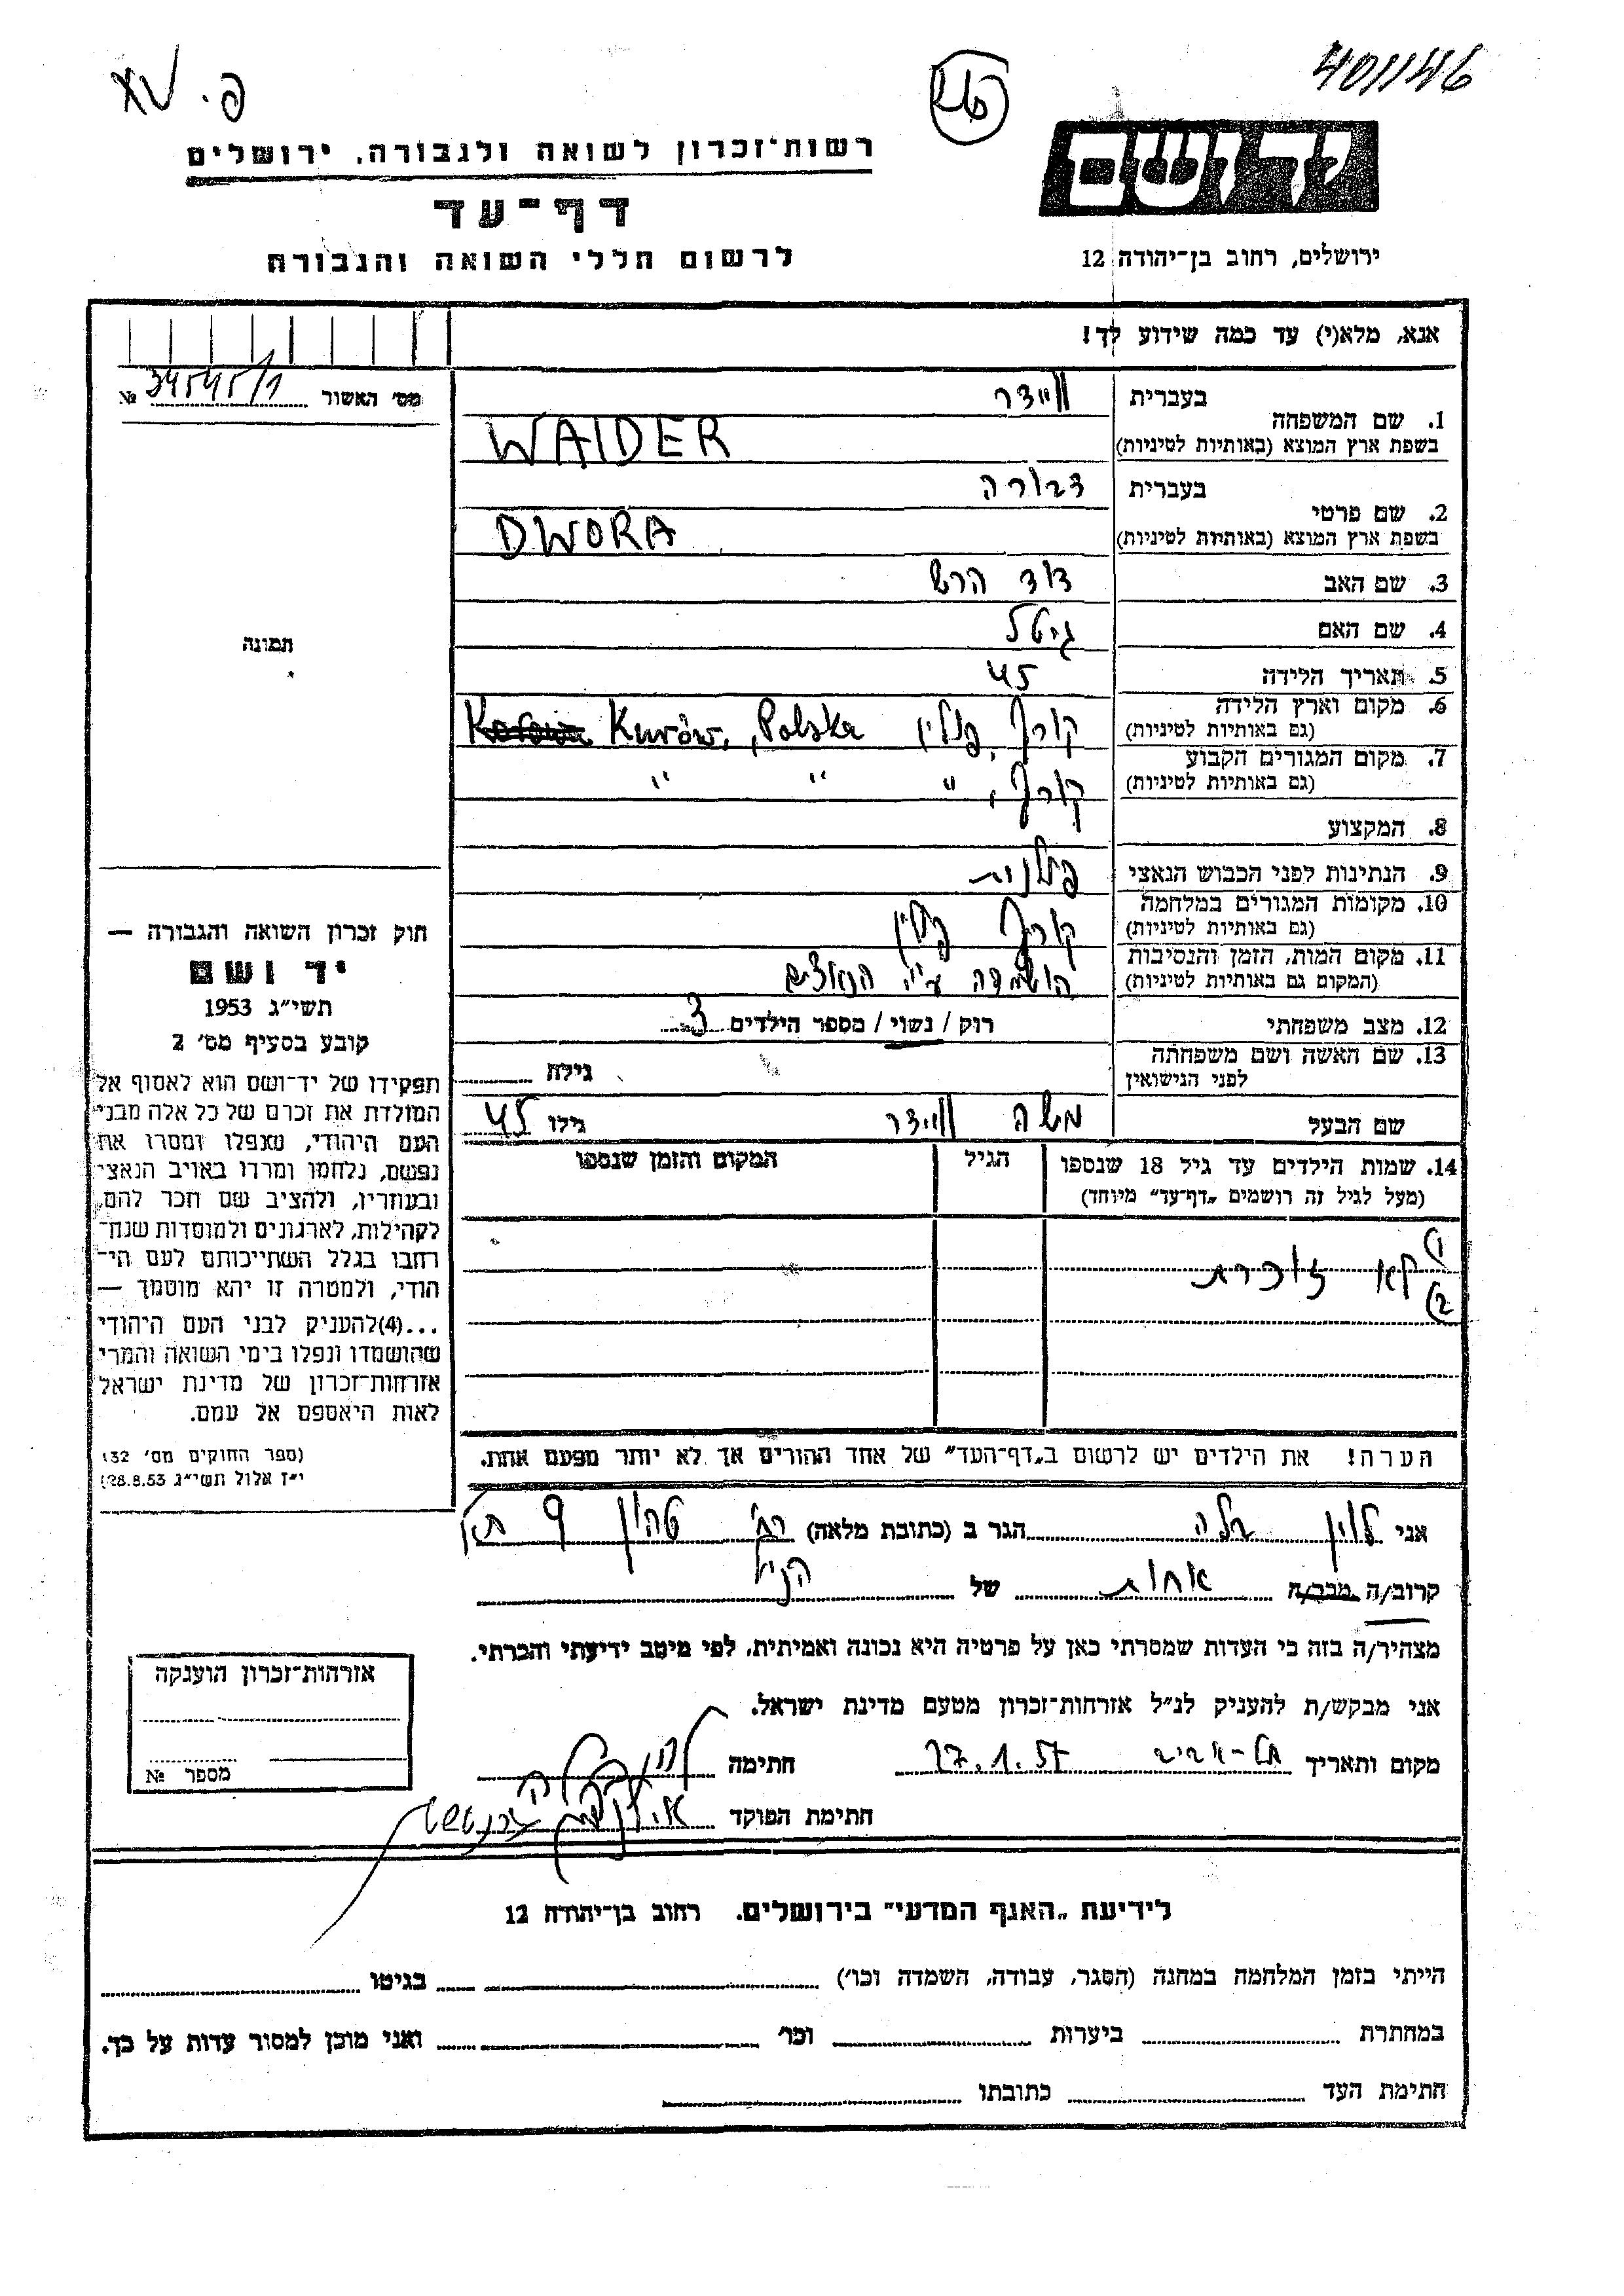 401146
פ. XV
רשות־זכרון לשואה ולגבורה, ירושלים
יד ושם
דף־עד
לרשום חללי השואה והגבורה
ירושלים, רחוב בן־יהודה 12
אנא, מלא(י) עד כמה שידוע לך!
מס׳ האשור № 34545/1
1. שם המשפחה
בעברית ווידר
בשפת ארץ המוצא (באותיות לטיניות) WAIDER
2. שם פרטי
בעברית דבורה
בשפת ארץ המוצא (באותיות לטיניות) DWORA
3. שם האב דוד הרש
4. שם האם גיטל
5. תאריך הלידה 45
6. מקום וארץ הלידה קורוב, פולין Kurów, Polska
(גם באותיות לטיניות)
7. מקום המגורים הקבוע קורוב, " " "
(גם באותיות לטיניות)
8. המקצוע
9. הנתינות לפני הכבוש הנאצי פולנית
10. מקומות המגורים במלחמה קורוב פולין
(גם באותיות לטיניות)
11. מקום המות, הזמן והנסיבות הושמדה ע״י הנאצים
(המקום גם באותיות לטיניות)
12. מצב משפחתי רוק / נשוי / מספר הילדים 3
13. שם האשה ושם משפחתה גילה
לפני הנישואין
שם הבעל משה ווידר גילו 45
14. שמות הילדים עד גיל 18 שנספו הגיל המקום והזמן שנספו
(מעל לגיל זה רושמים „דף־עד״ מיוחד)
1)
לא זוכרת
2)
הערה! את הילדים יש לרשום ב„דף־העד״ של אחד ההורים אך לא יותר מפעם אחת.
תמונה
חוק זכרון השואה והגבורה —
יד ושם
תשי״ג 1953
קובע בסעיף מס׳ 2
תפקידו של יד־ושם הוא לאסוף אל
המולדת את זכרם של כל אלה מבני
העם היהודי, שנפלו ומסרו את
נפשם, נלחמו ומרדו באויב הנאצי
ובעוזריו, ולהציב שם וזכר להם,
לקהילות, לארגונים ולמוסדות שנח־
רחבו בגלל השתייכותם לעם הי־
הודי, ולמטרה זו יהא מוסמך —
...(4)להעניק לבני העם היהודי
שהושמדו ונפלו בימי השואה והמרי
אזרחות־זכרון של מדינת ישראל
לאות היאספם אל עמם.
(ספר החוקים מס׳ 132
י״ז אלול תשי״ג 28.8.53)
אני לוין בלה הגר ב (כתובת מלאה) רח׳ 9 תא
קרוב/ה מכר/ה אחות של הנ״ל
מצהיר/ה בזה כי העדות שמסרתי כאן על פרטיה היא נכונה ואמיתית, לפי מיטב ידיעתי והכרתי.
אני מבקש/ת להעניק לנ״ל אזרחות־זכרון מטעם מדינת ישראל.
מקום ותאריך תל־אביב 27.1.57 חתימה
חתימת הפוקד
אזרחות־זכרון הוענקה
מספר №
לידיעת „האגף המדעי״ בירושלים. רחוב בן־יהודה 12
הייתי בזמן המלחמה במחנה (הסגר, עבודה, השמדה וכו׳) בגיטו
במחתרת ביערות וכו׳ ואני מוכן למסור עדות על כך.
חתימת העד כתובתו